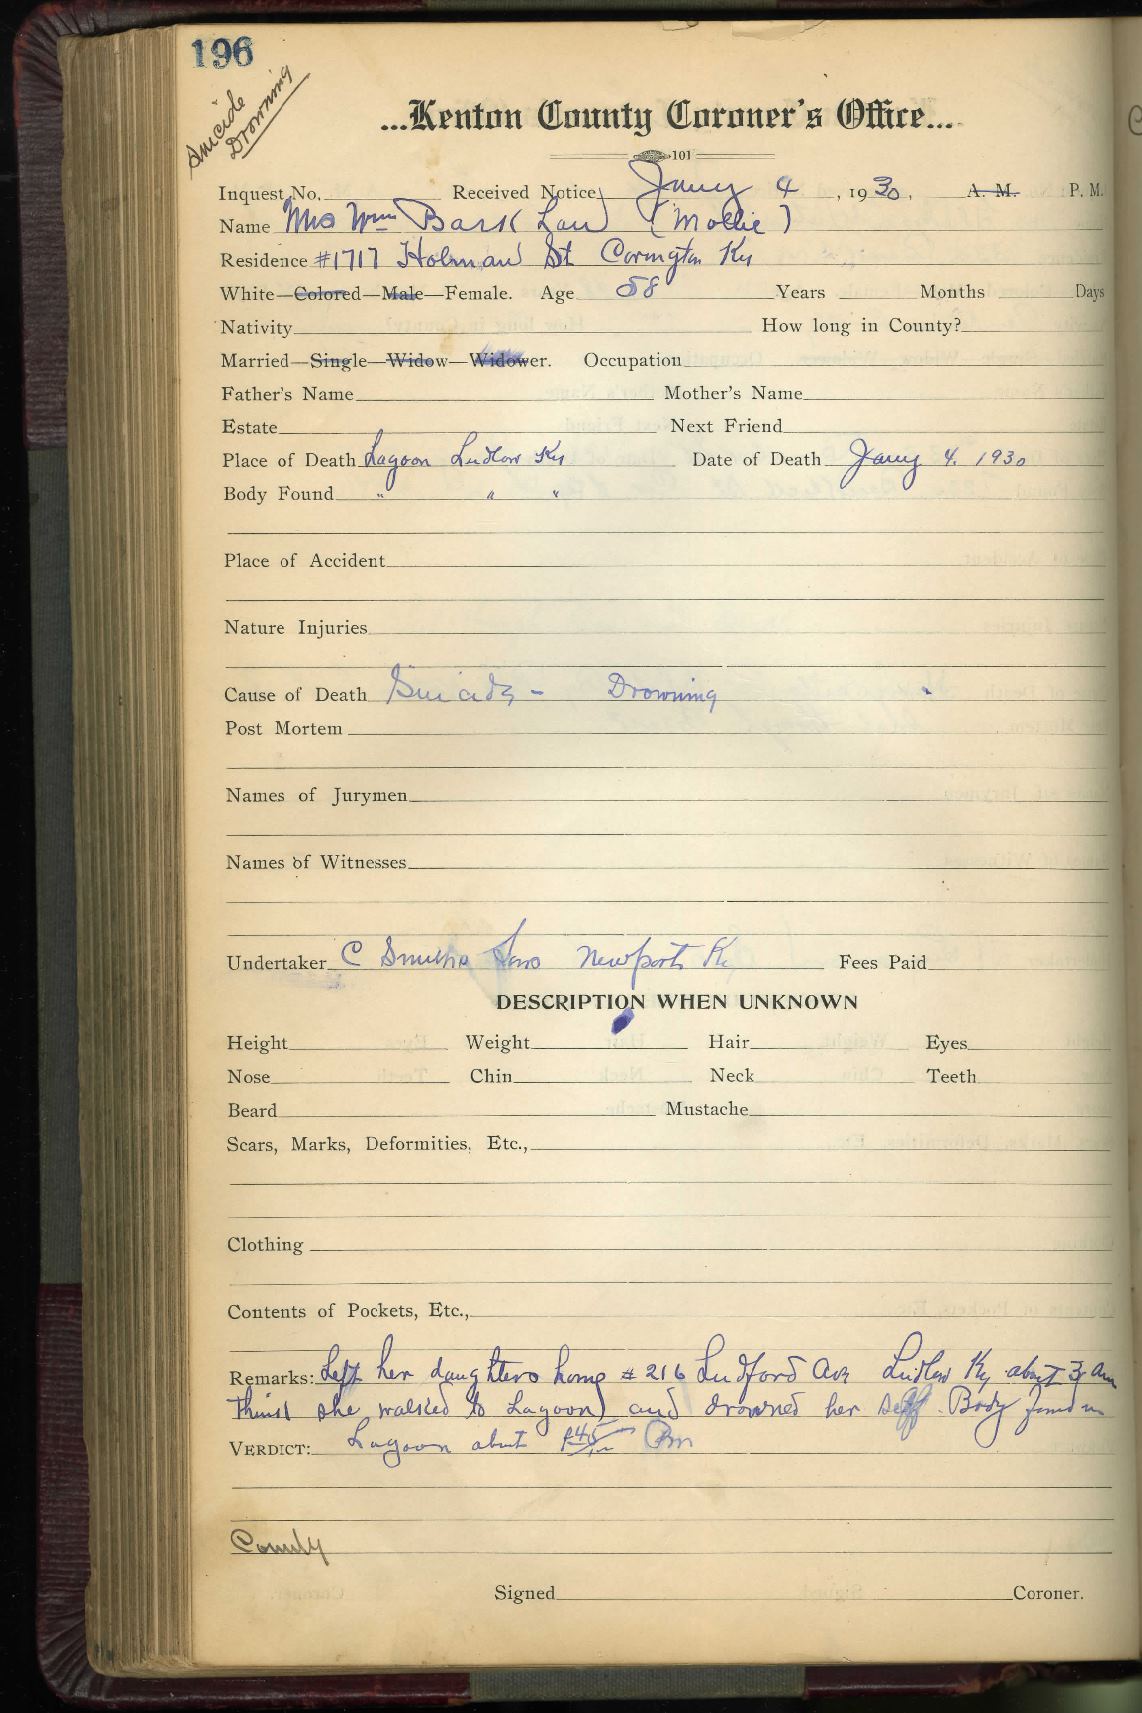 196
Suicide
Drowning
...Kenton County Coroner's Office...
101
Inquest No. Received Notice Jany 4, 1930, A. M. P. M.
Name Mrs Wm Bark Lau (Mollie)
Residence #1717 Holman St Covington Ky
White—Colored—Male—Female. Age 58 Years Months Days
Nativity How long in County?
Married—Single—Widow—Widower. Occupation
Father's Name Mother's Name
Estate Next Friend
Place of Death Lagoon Ludlow Ky Date of Death Jany 4. 1930
Body Found " " "
Place of Accident
Nature Injuries
Cause of Death Suicide - Drowning
Post Mortem
Names of Jurymen
Names of Witnesses
Undertaker C Smiths Sons Newport Ky Fees Paid
DESCRIPTION WHEN UNKNOWN
Height Weight Hair Eyes
Nose Chin Neck Teeth
Beard Mustache
Scars, Marks, Deformities, Etc.,
Clothing
Contents of Pockets, Etc.,
Remarks: Left her daughters home #216 Ludford Ave Ludlow Ky about 3 am
think she walked to Lagoon and drowned her self. Body found in
VERDICT: Lagoon about Pm
County
Signed Coroner.